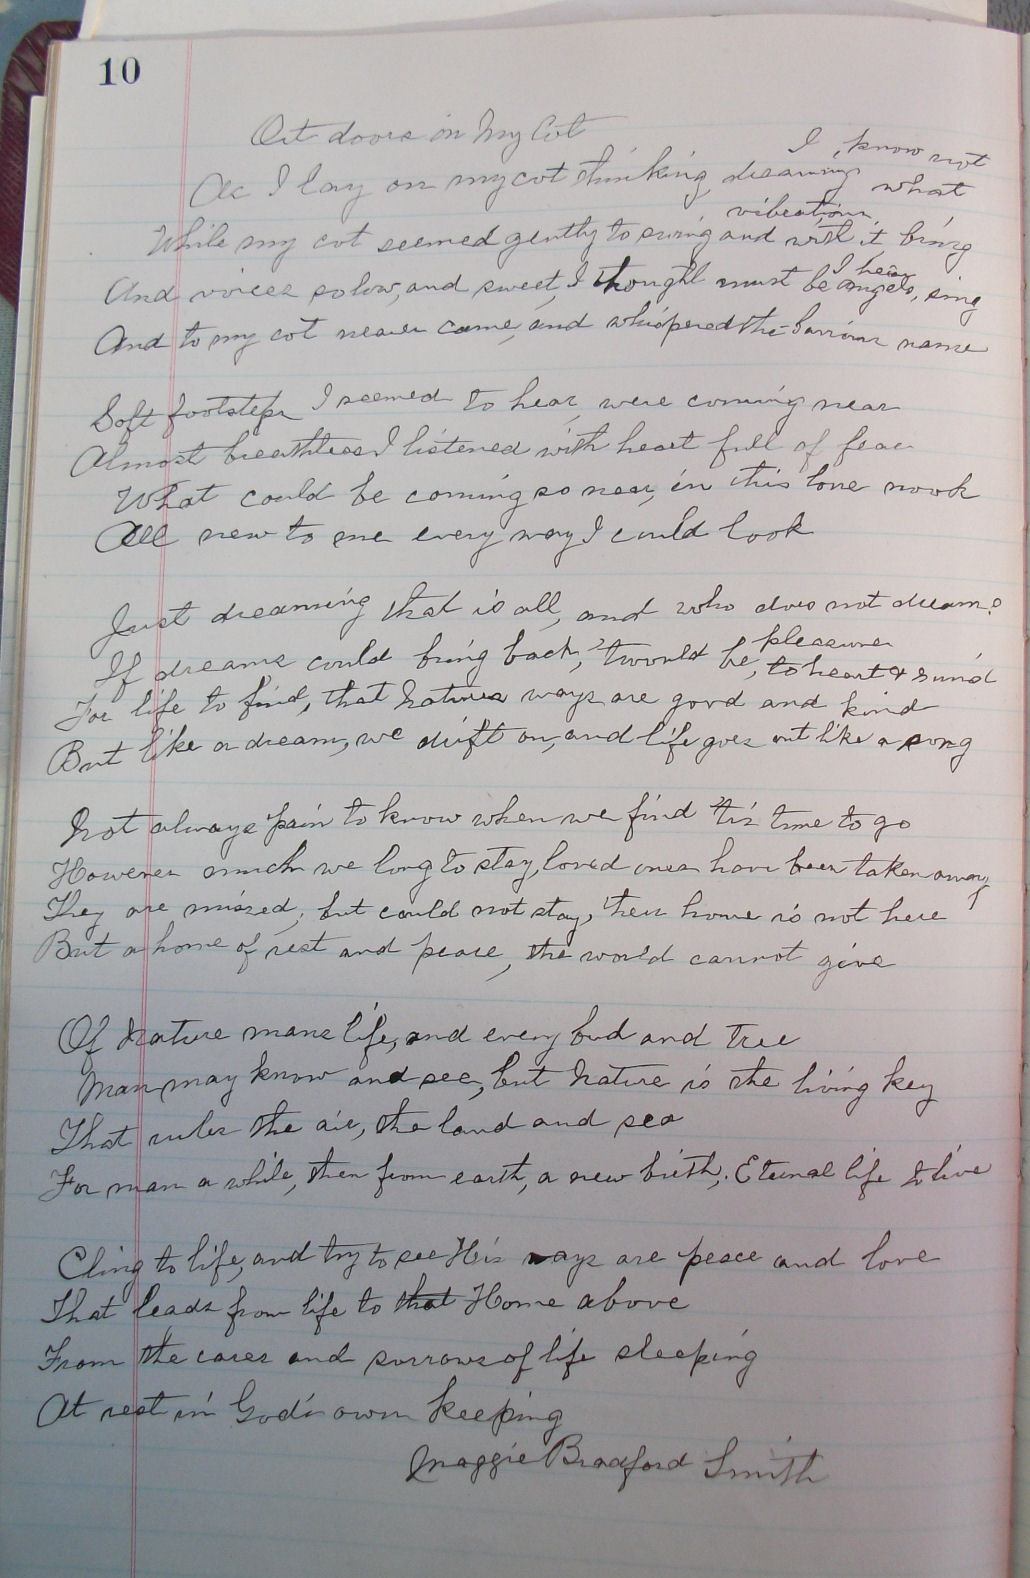 10
Out doors in My Cot
As I lay on my cot thinking, dreaming I know not what
While my cot seemed gently to swing and with it vibrations bring
And voices so low, and sweet, I thought must be angels, I hear sing
And to my cot nearer came, and whispered the Saviour name
Soft footsteps I seemed to hear, were coming near
Almost breathless I listened with heart full of fear
What could be coming so near, in this lone nook
All new to me every way I could look
Just dreaming that is all, and who does not dream?
If dreams could bring back, 'twould be, pleasures to heart & mind
For life to find, that Natures ways are good and kind
But like a dream, we drift on, and life goes out like a song
Not always pain to know when we find 'tis time to go
However much we long to stay, loved ones have been taken away
They are missed, but could not stay, their home is not here
But a home of rest and peace, the world cannot give
Of Nature mans life, and every bud and tree
Man may know and see, but Nature is the living key
That rules the air, the land and sea
For man a while, then from earth, a new birth, Eternal life to live
Cling to life, and try to see His ways are peace and love
That leads from life to that Home above
From the cares and sorrows of life sleeping
At rest in God's own keeping
Maggie Bradford Smith